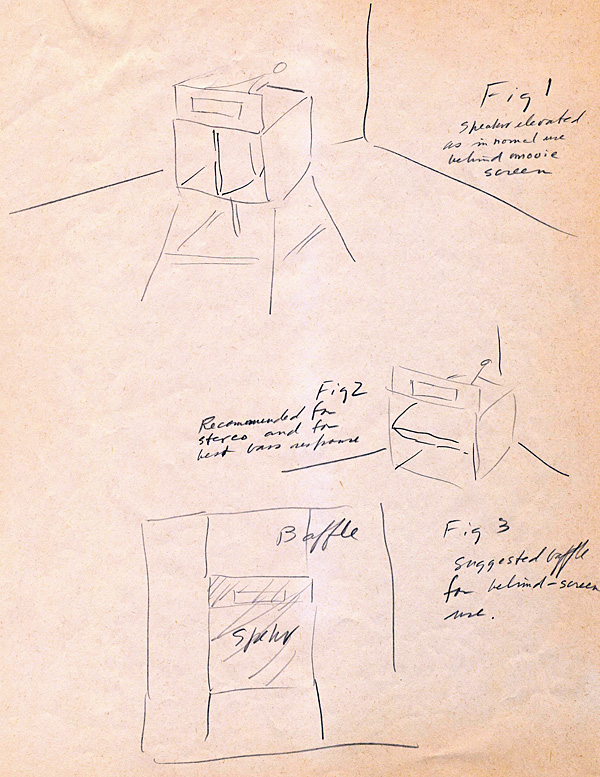 Fig 1
Speaker elevated
as in normal use
behind movie
screen
Fig 2
Recommended for
stereo and for
best bass response
Baffle
Fig 3
suggested baffle
for behind-screen
use.
Spkr